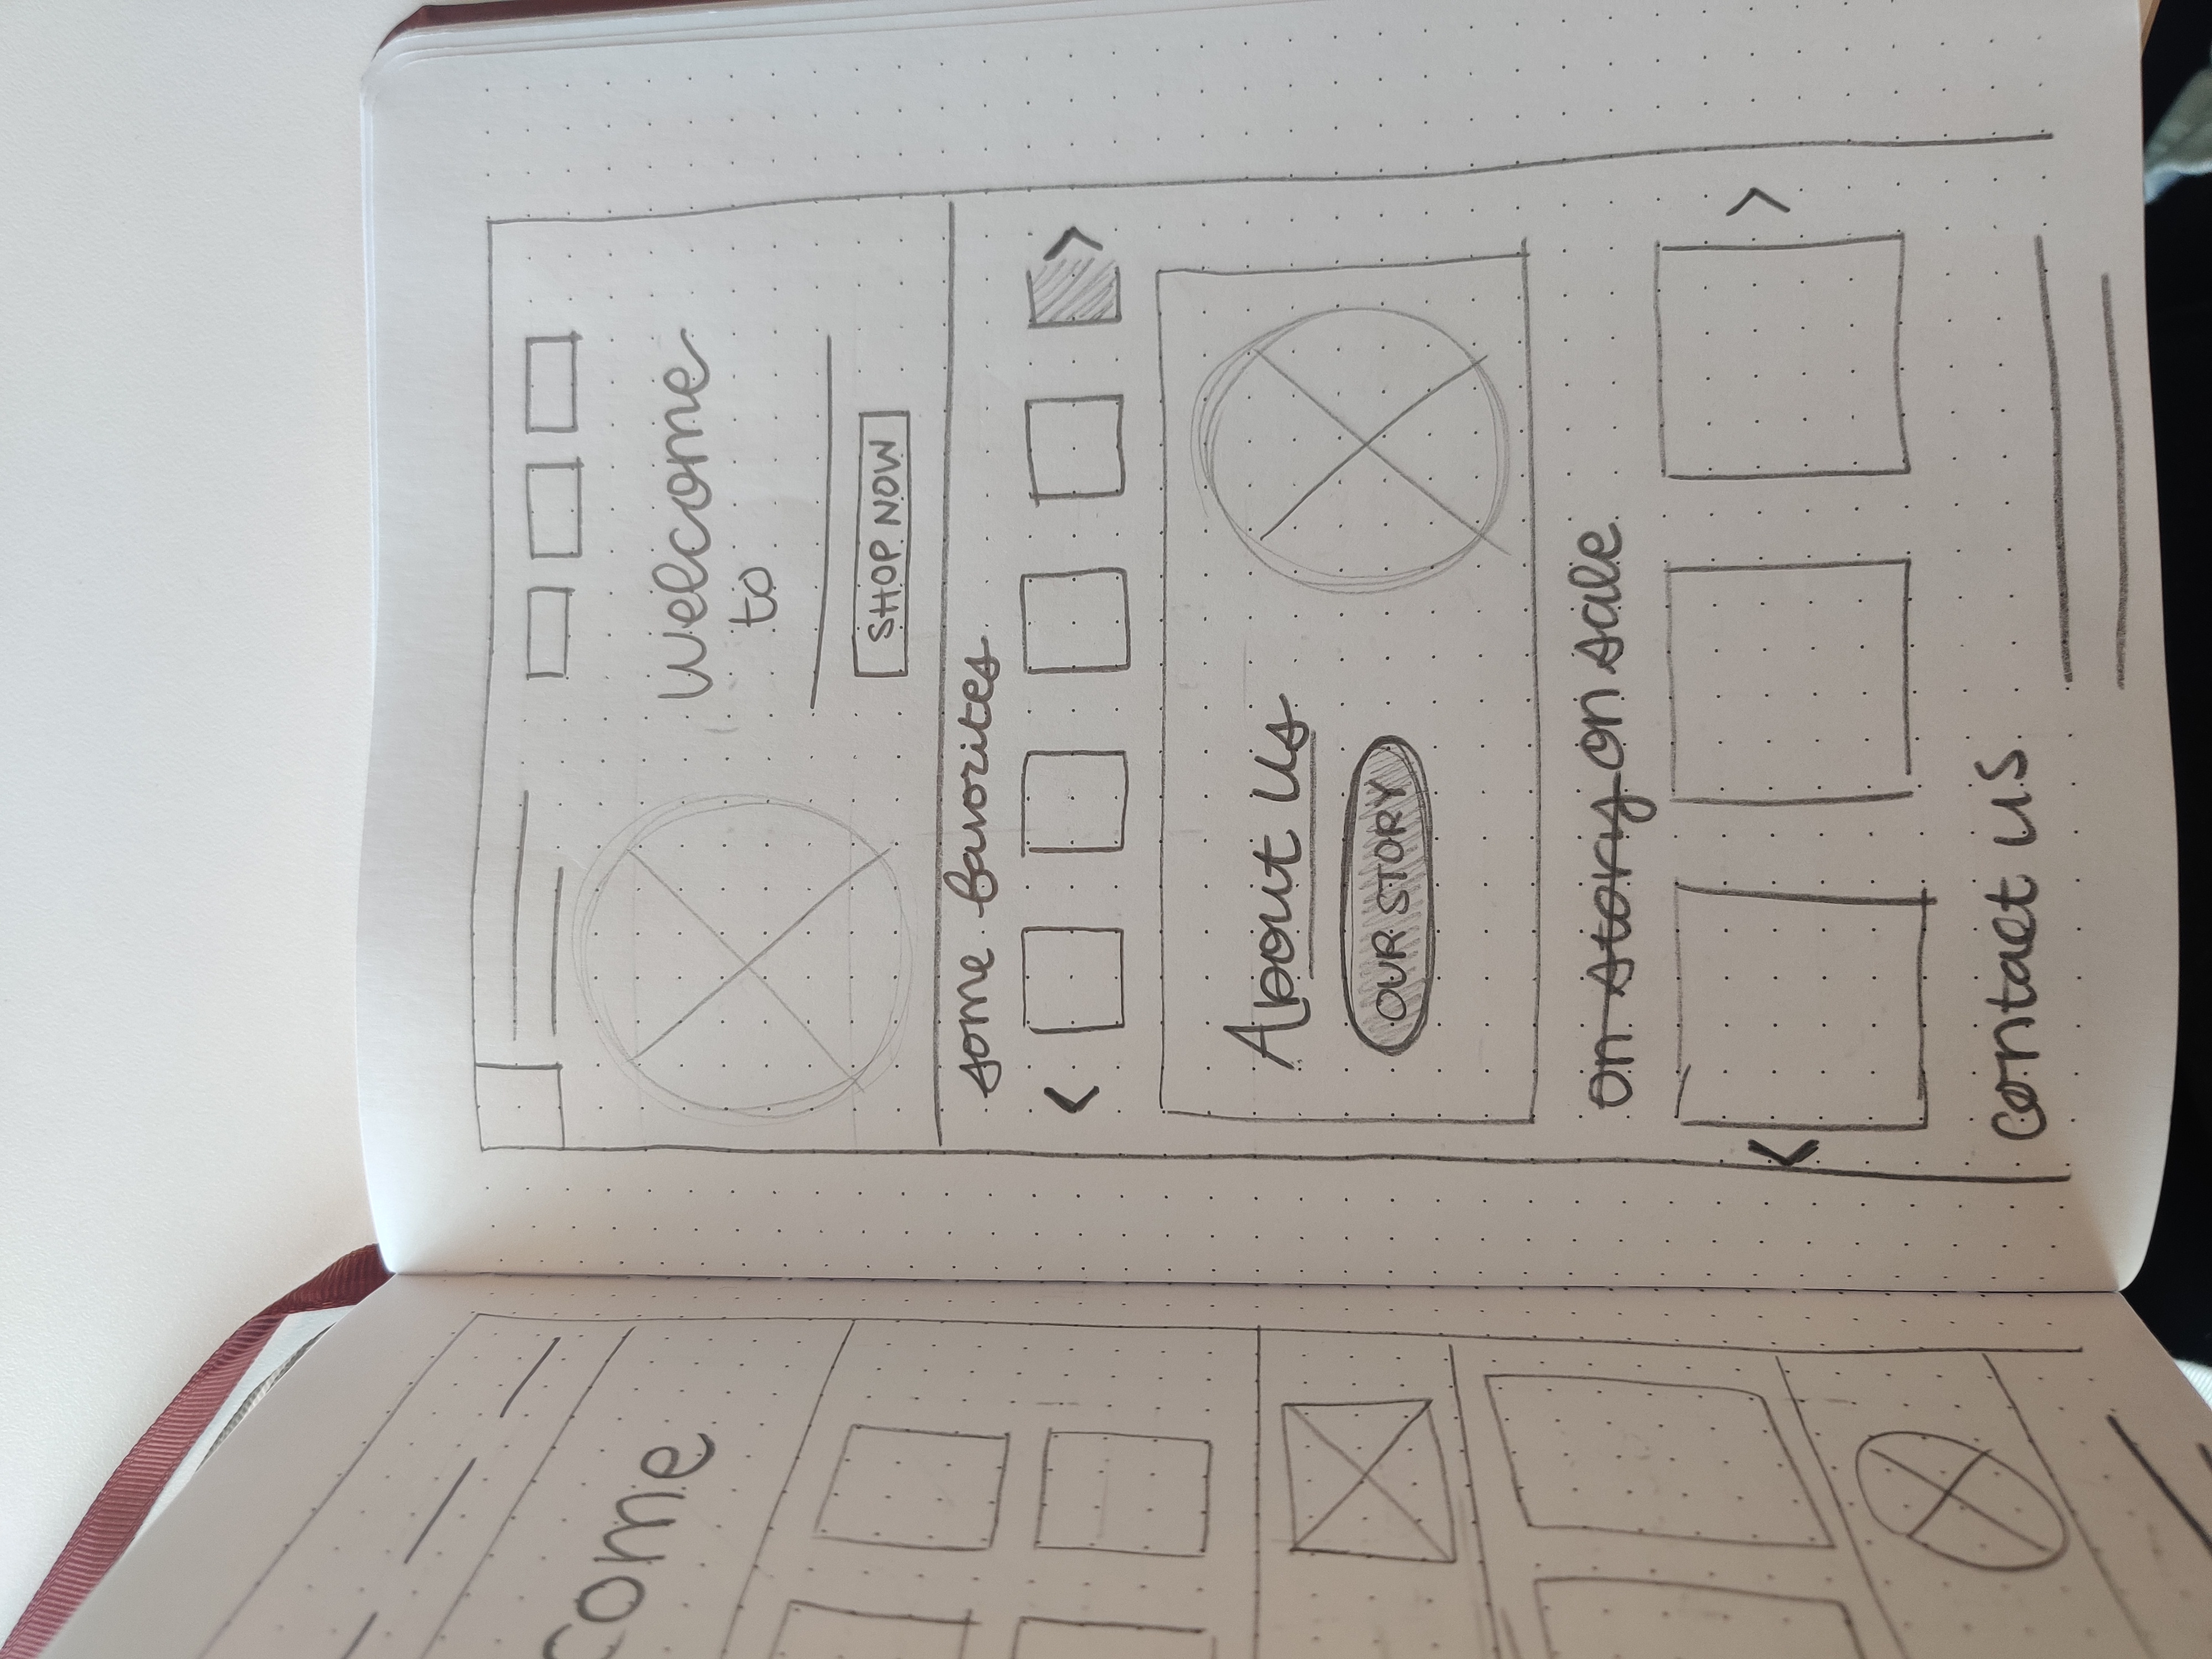 come
Welcome
to
SHOP NOW
some favorites
About Us
OUR STORY
on story on sale
contact us